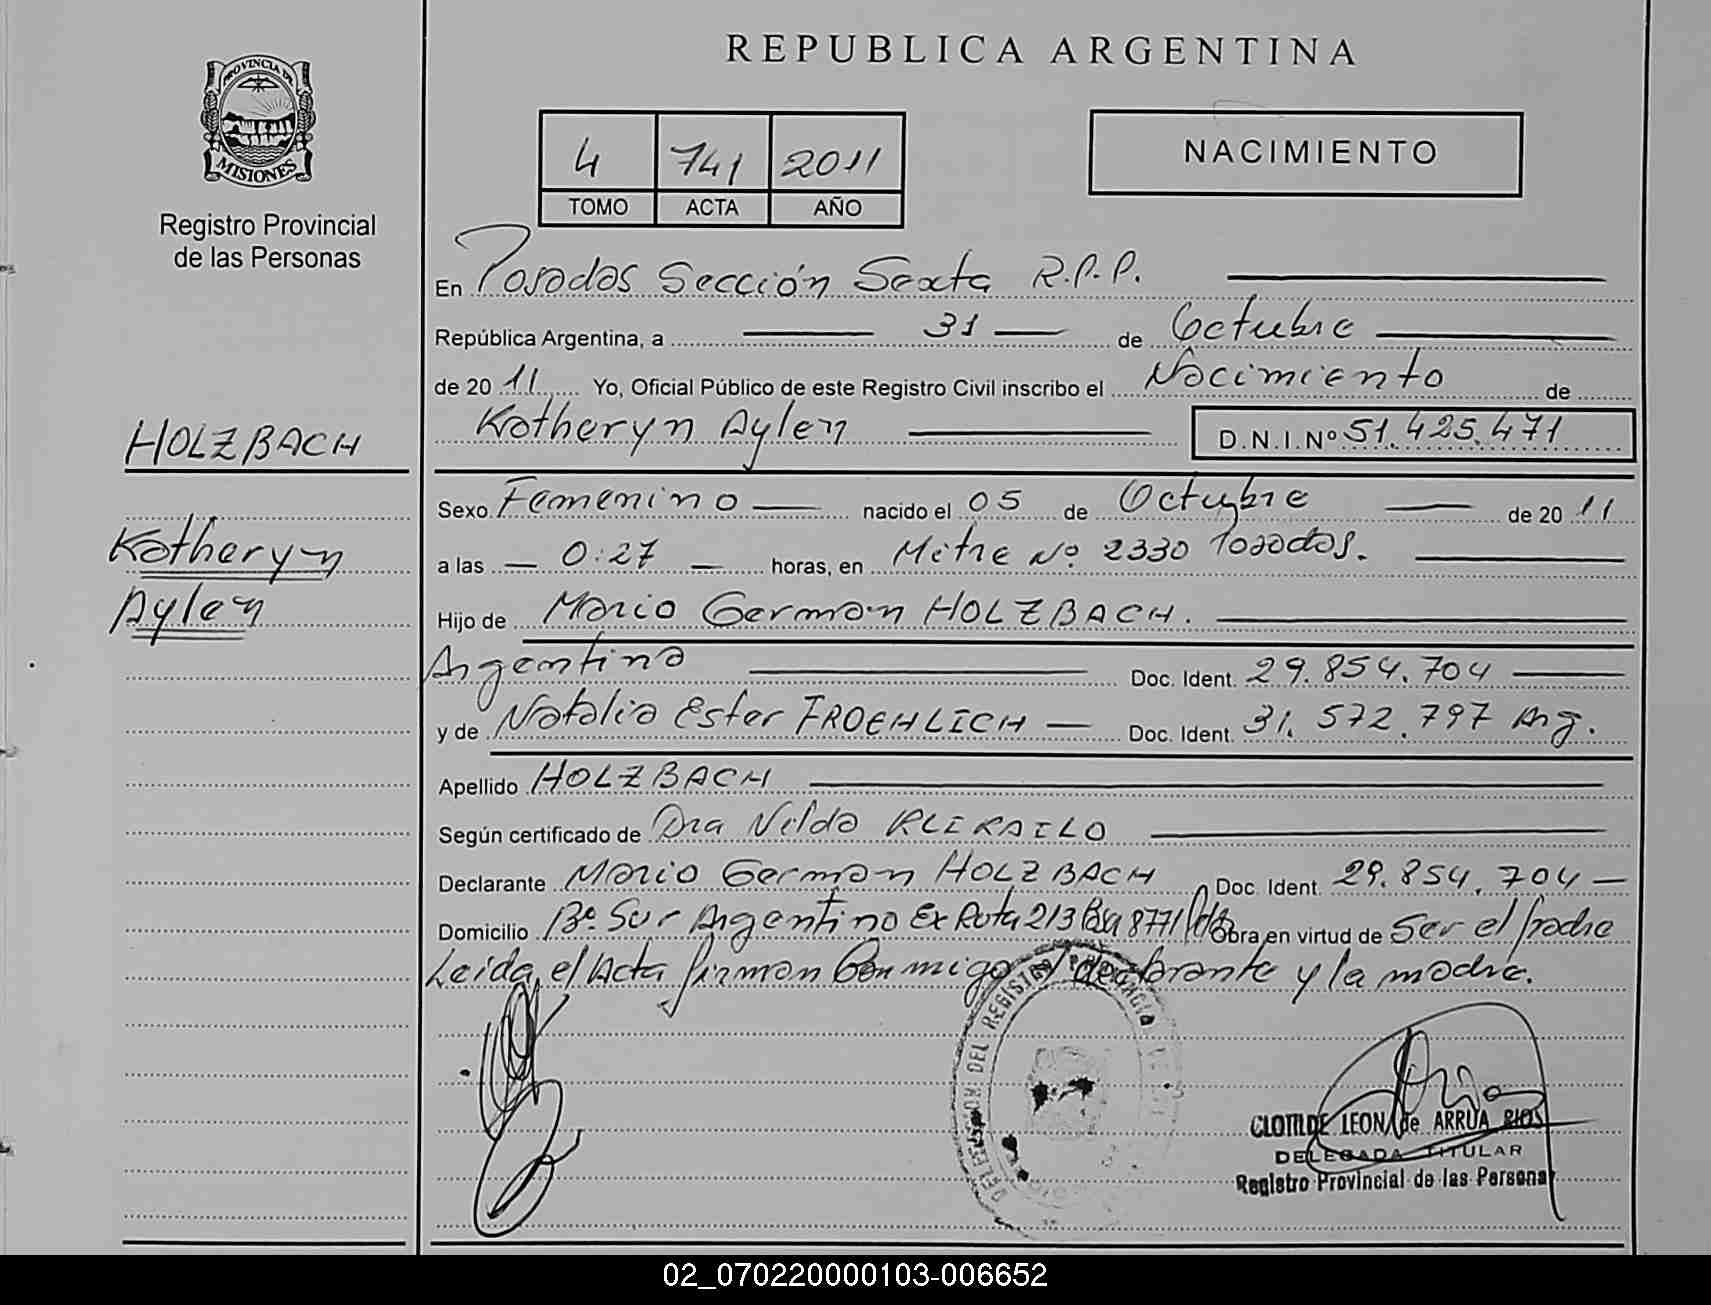 REPUBLICA ARGENTINA
PROVINCIA DE
MISIONES
Registro Provincial
de las Personas
4 741 2011
TOMO ACTA AÑO
NACIMIENTO
En Posadas Sección Sexta R.P.P.
República Argentina, a 31 de Octubre
de 20 11 Yo, Oficial Público de este Registro Civil inscribo el Nacimiento de
Katheryn Aylen D.N.I.Nº 51.425.471
HOLZBACH
Katheryn
Aylen
Sexo Femenino nacido el 05 de Octubre de 20 11
a las 0:27 horas, en Mitre Nº 2330 Posadas.
Hijo de Mario German HOLZBACH.
Argentino Doc. Ident. 29.854.704
y de Natalia Ester FROEHLICH Doc. Ident. 31.572.797 Arg.
Apellido HOLZBACH
Según certificado de Dra Nilda
Declarante Mario German HOLZBACH Doc. Ident. 29.854.704
Domicilio Bº Sur Argentino Ex Ruta 213 8771 Obra en virtud de Ser el padre
Leida el Acta firman Conmigo el declarante y la madre.
DELEGACION DEL REGISTRO PROVINCIAL DE
CLOTILDE LEON de ARRUA RIOS
DELEGADA TITULAR
Registro Provincial de las Personas
02_070220000103-006652